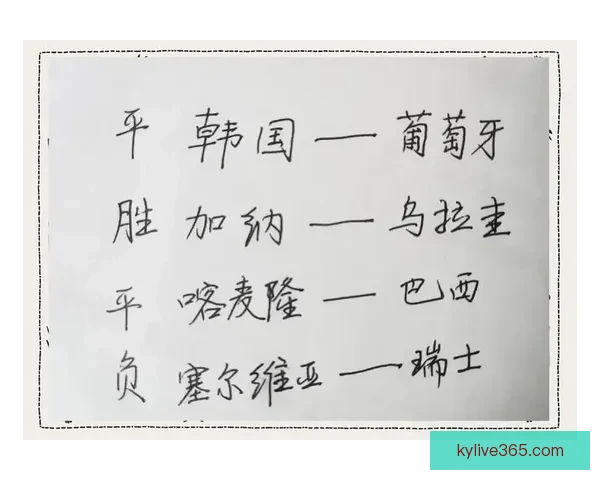 平 韩国 — 葡萄牙
胜 加纳 — 乌拉圭
平 喀麦隆 — 巴西
负 塞尔维亚 — 瑞士
kylive365.com